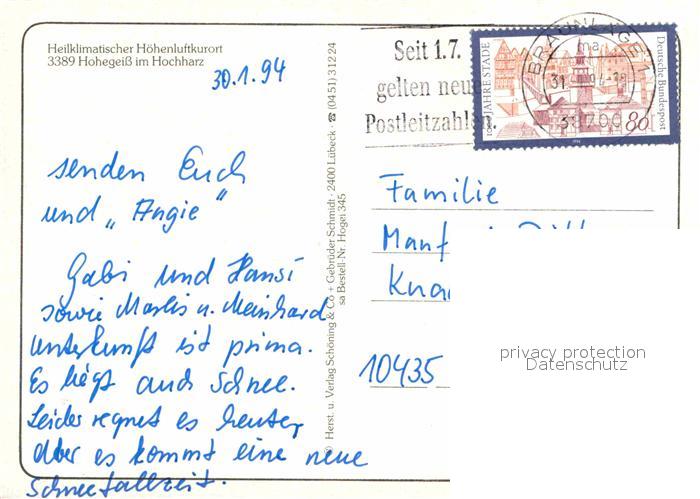 Heilklimatischer Höhenluftkurort
3389 Hohegeiß im Hochharz
30.1.94
senden Euch
und „Angie"
Gabi und Hansi
sowie Marlis u. Meinhard
Unterkunft ist prima.
Es liegt auch Schnee.
Leider regnet es heute,
aber es kommt eine neue
Schneefallzeit.
© Herst. u. Verlag Schöning & Co + Gebrüder Schmidt · 2400 Lübeck · ☎ (04 51) 3 12 24
sa Bestell-Nr. Hogei 345
Seit 1.7.
gelten neue
Postleitzahlen.
BRAUNLAGE 1
ma
38700
1000 JAHRE STADE
Deutsche Bundespost
80
Familie
Manf
Kna
10435
privacy protection
Datenschutz